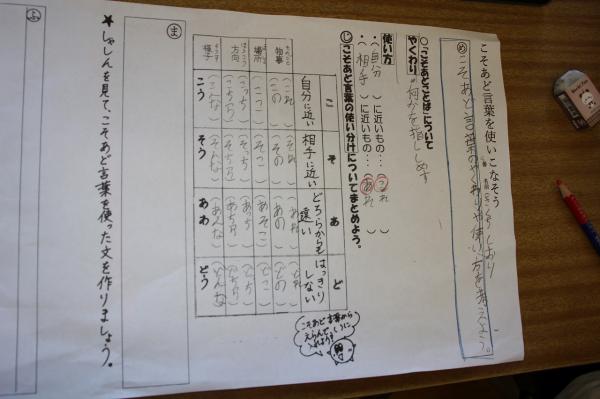 こそあど言葉を使いこなそう
め こそあど言葉のやくわりや使い方を考えよう。
○「こそあどことば」について
やくわり 何かを指ししめす
使い方
・(自分)に近いもの・・・(これ)
・(相手)に近いもの・・・(あれ)
じ こそあど言葉の使い分けについてまとめよう。
こ そ あ ど
自分に近い 相手に近い どちらからも遠い はっきりしない
物事 (これ) (それ) (あれ) (どれ)
(この) (その) (あの) (どの)
場所 (ここ) (そこ) (あそこ) (どこ)
方向 (こっち) (そっち) (あっち) (どっち)
(こちら) (そちら) (あちら) (どちら)
様子 (こんな) (そんな) (あんな) (どんな)
こう そう ああ どう
こそあど言葉からえらんで入れよう
ま
★しゃしんを見て、こそあど言葉を使った文を作りましょう。
ふ